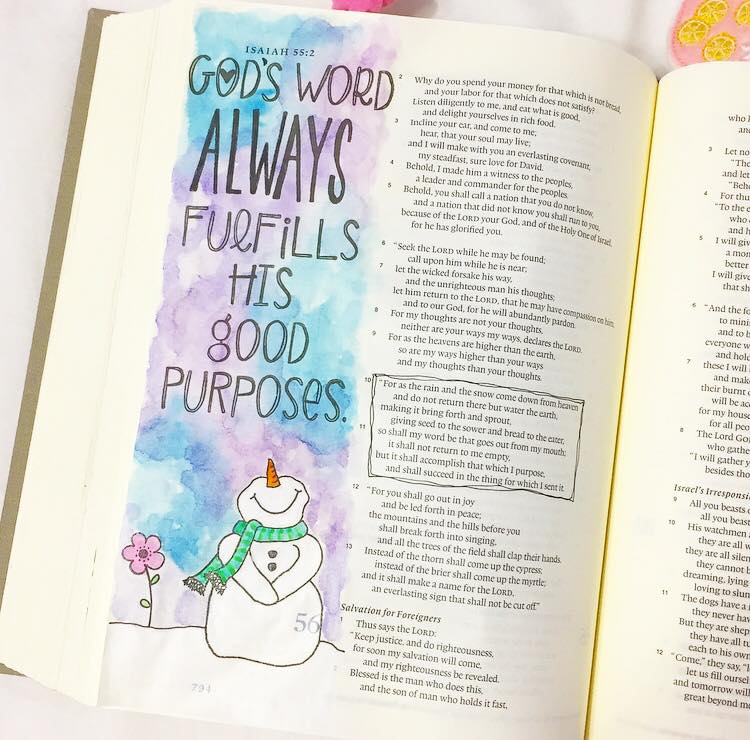 ISAIAH 55:2
GOD'S WORD
ALWAYS
FULFILLS
HIS
GOOD
PURPOSES.
2 Why do you spend your money for that which is not bread,
and your labor for that which does not satisfy?
Listen diligently to me, and eat what is good,
and delight yourselves in rich food.
3 Incline your ear, and come to me;
hear, that your soul may live;
and I will make with you an everlasting covenant,
my steadfast, sure love for David.
4 Behold, I made him a witness to the peoples,
a leader and commander for the peoples.
5 Behold, you shall call a nation that you do not know,
and a nation that did not know you shall run to you,
because of the LORD your God, and of the Holy One of Israel,
for he has glorified you.
6 "Seek the LORD while he may be found;
call upon him while he is near;
7 let the wicked forsake his way,
and the unrighteous man his thoughts;
let him return to the LORD, that he may have compassion on him,
and to our God, for he will abundantly pardon.
8 For my thoughts are not your thoughts,
neither are your ways my ways, declares the LORD.
9 For as the heavens are higher than the earth,
so are my ways higher than your ways
and my thoughts than your thoughts.
10 "For as the rain and the snow come down from heaven
and do not return there but water the earth,
making it bring forth and sprout,
giving seed to the sower and bread to the eater,
11 so shall my word be that goes out from my mouth;
it shall not return to me empty,
but it shall accomplish that which I purpose,
and shall succeed in the thing for which I sent it.
12 "For you shall go out in joy
and be led forth in peace;
the mountains and the hills before you
shall break forth into singing,
and all the trees of the field shall clap their hands.
13 Instead of the thorn shall come up the cypress;
instead of the brier shall come up the myrtle;
and it shall make a name for the LORD,
an everlasting sign that shall not be cut off."
Salvation for Foreigners
56 1 Thus says the LORD:
"Keep justice, and do righteousness,
for soon my salvation will come,
and my righteousness be revealed.
2 Blessed is the man who does this,
and the son of man who holds it fast,
794
who
and
3 Let no
"The
and let
"Beho
4 For thu
"To the e
who
and h
5 I will giv
a mon
better
I will give
that sh
6 "And the fo
to minis
and to
everyone w
and hold
7 these I will
and make
their burnt
will be ac
for my house
for all peo
8 The Lord GO
who gathe
"I will gather y
besides tho
Israel's Irresponsi
9 All you beasts
all you beas
10 His watchmen
they are all w
they are all silen
they cannot b
dreaming, lying
loving to slum
11 The dogs have a
they never hav
But they are shep
they have all tu
each to his own
12 "Come," they say, "l
let us fill oursel
and tomorrow will
great beyond me